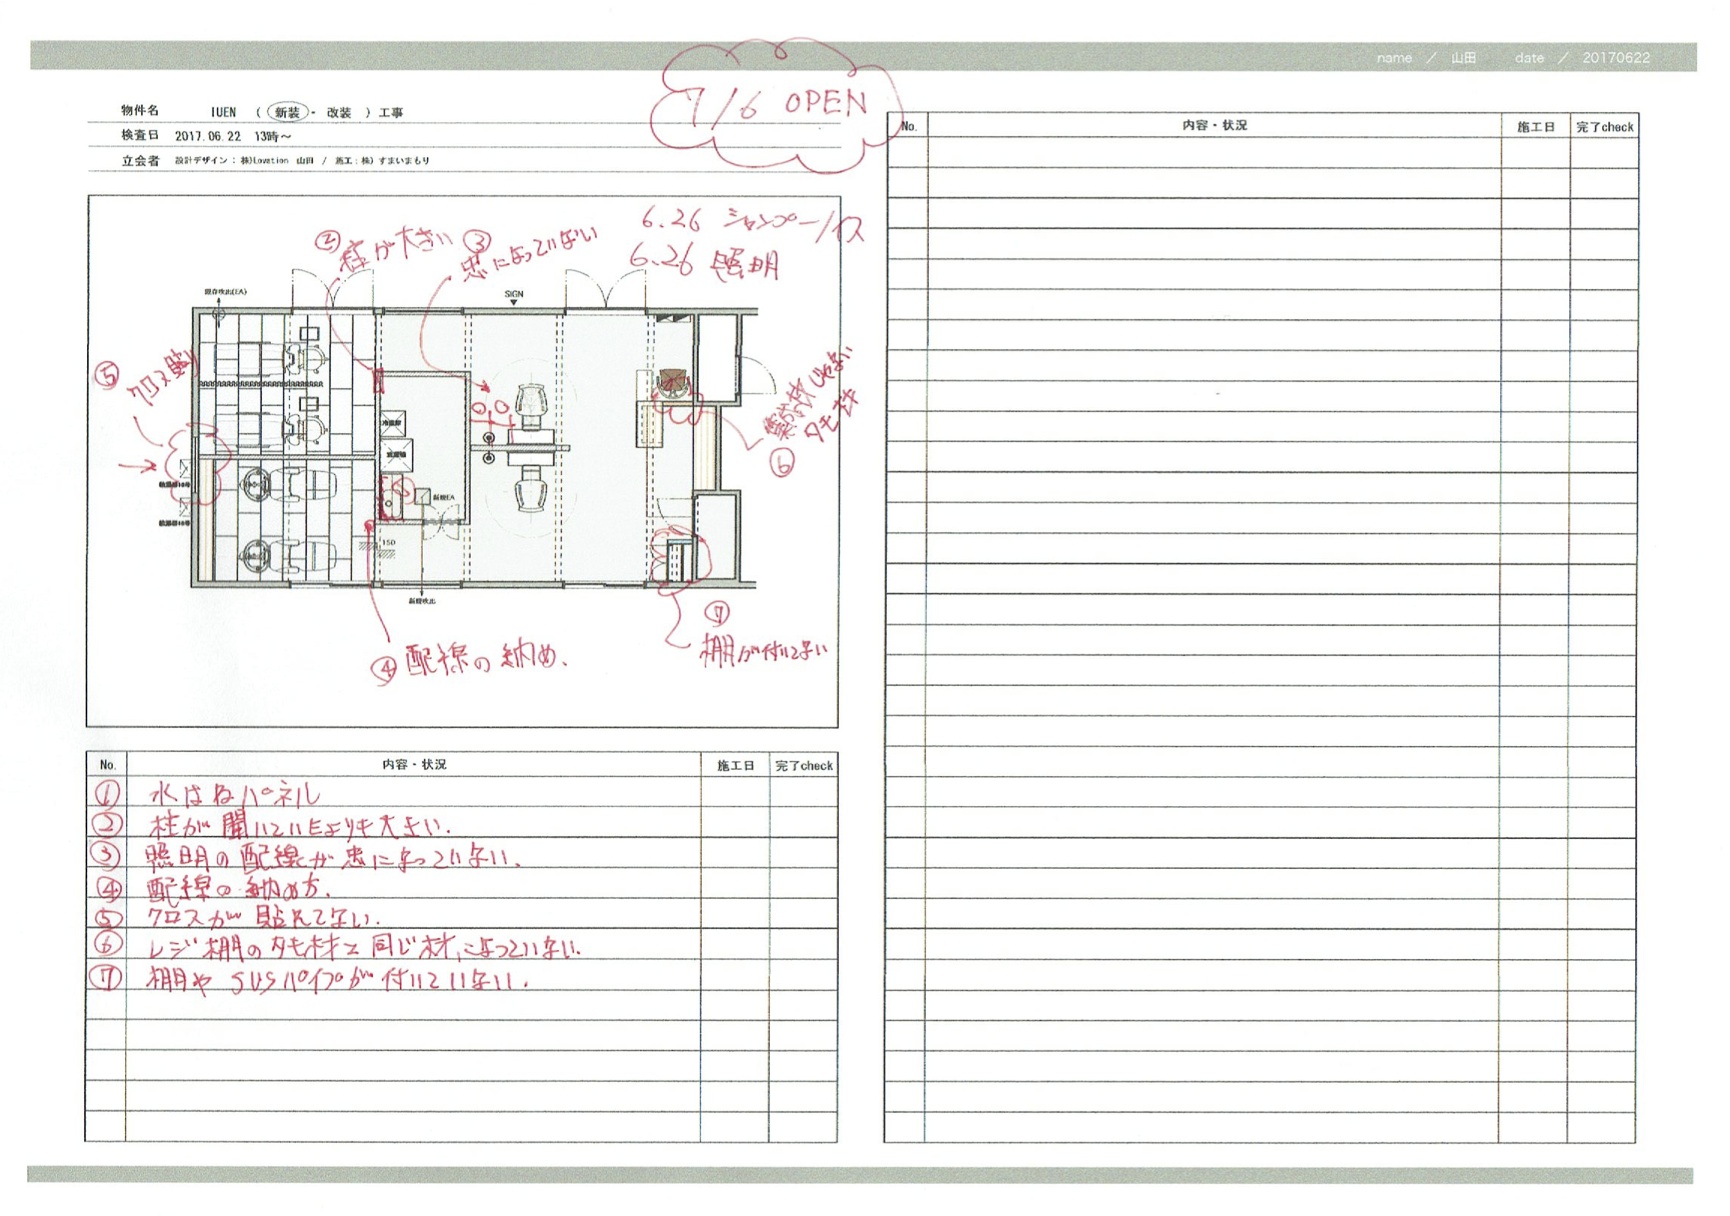 name ／ 山田 date ／ 20170622
7/6 OPEN
物件名 IUEN （ 新装 ・ 改装 ）工事
検査日 2017.06.22 13時～
立会者 設計デザイン：株)Lovation 山田 / 施工：株) すまいまもり
6.26 シャンプーイス
6.26 照明
② 柱が大きい
③ 忠になっていない
既存吹出(EA)
SIGN
⑤ クロス貼り
集成材じゃない
タモ材
⑥
冷蔵庫
洗濯機
新規EA
150
新規吹出
④ 配線の納め.
⑦
棚が付いてない
No. 内容・状況 施工日 完了check
① 水はねパネル
② 柱が聞いていたよりも大きい.
③ 照明の配線が忠になっていない.
④ 配線の納め方.
⑤ クロスが貼れてない.
⑥ レジ棚のタモ材と同じ材になっていない.
⑦ 棚や SUSパイプが付いていない.
No. 内容・状況 施工日 完了check